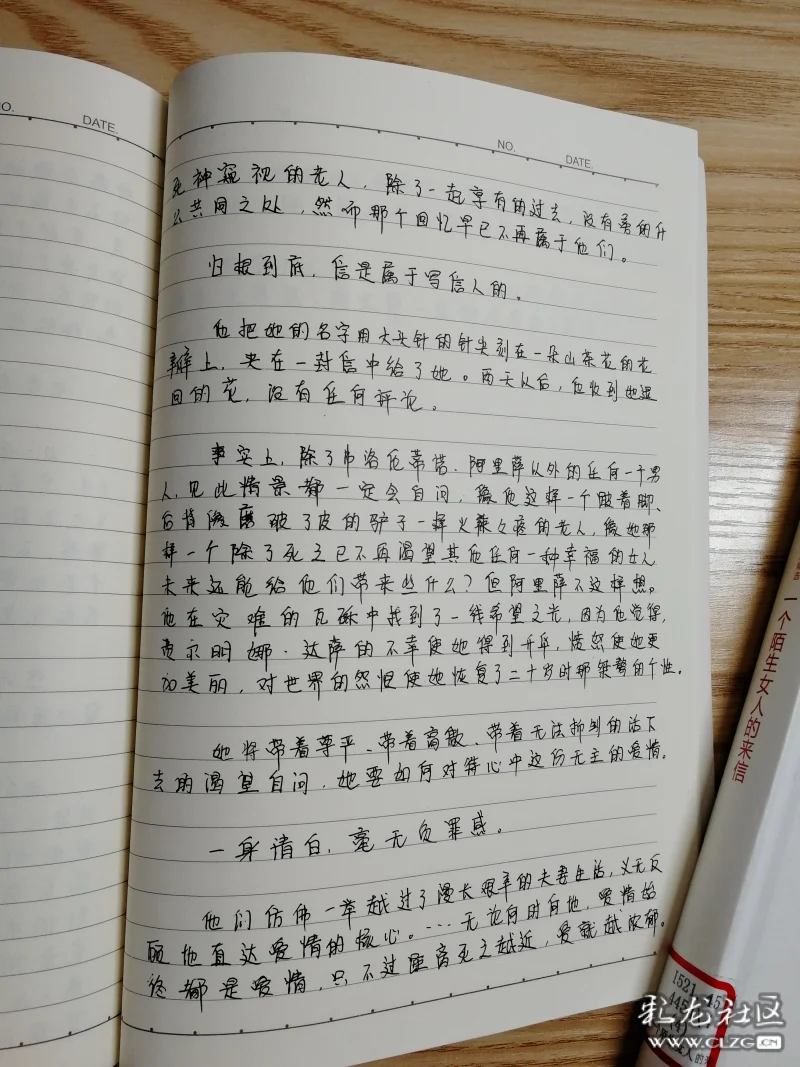 NO.
DATE.
NO.
DATE.
死神窥视的老人，除了一起享有的过去，没有着的什
么共同之处，然而那个回忆早已不再属于他们。
归根到底，信是属于写信人的。
他把她的名字用大头针的针尖刻在一朵山茶花的花
瓣上，夹在一封信中给了她。两天以后，他收到她退
回的花，没有任何评论。
事实上，除了弗洛伦蒂诺·阿里萨以外的任何一个男
人，见此情景都一定会自问，像他这样一个跛着脚、
后背像磨破了皮的驴子一样火辣々疼的老人，像她那
样一个除了死之已不再渴望其他任何一种幸福的女人
未来还能给他们带来些什么？但阿里萨不这样想。
他在灾难的瓦砾中找到了一线希望之光，因为他觉得，
费尔明娜·达萨的不幸使她得到升华，愤怒使她更
加美丽，对世界的怨恨使她恢复了二十岁时那桀骜的个性。
她将带着尊严、带着高傲、带着无法抑制的活下
去的渴望自问，她要如何对待心中这份无主的爱情。
一身清白，毫无负罪感。
他们仿佛一举越过了漫长艰辛的夫妻生活，义无反
顾地直达爱情的核心。……无论何时何地，爱情始
终都是爱情，只不过距离死之越近，爱就越浓郁。
一个陌生女人的来信
1521
彩龙社区
WWW.CLZG.CN